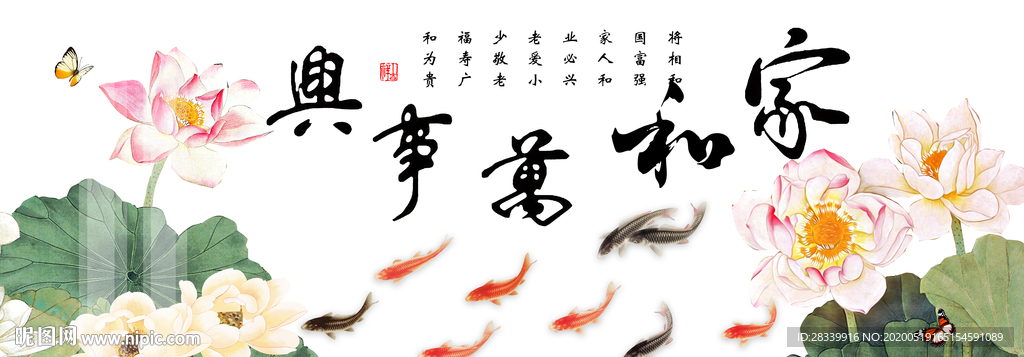 家和萬事興
将相和
国富强
家人和
业必兴
老爱小
少敬老
福寿广
和为贵
昵图网
www.nipic.com
ID:28339916 NO:20200519165154591089